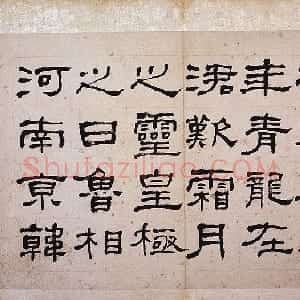 年青龍在
涒歎霜月
之靈皇極
之日魯相
河南京韓
Shufaziliao.COM